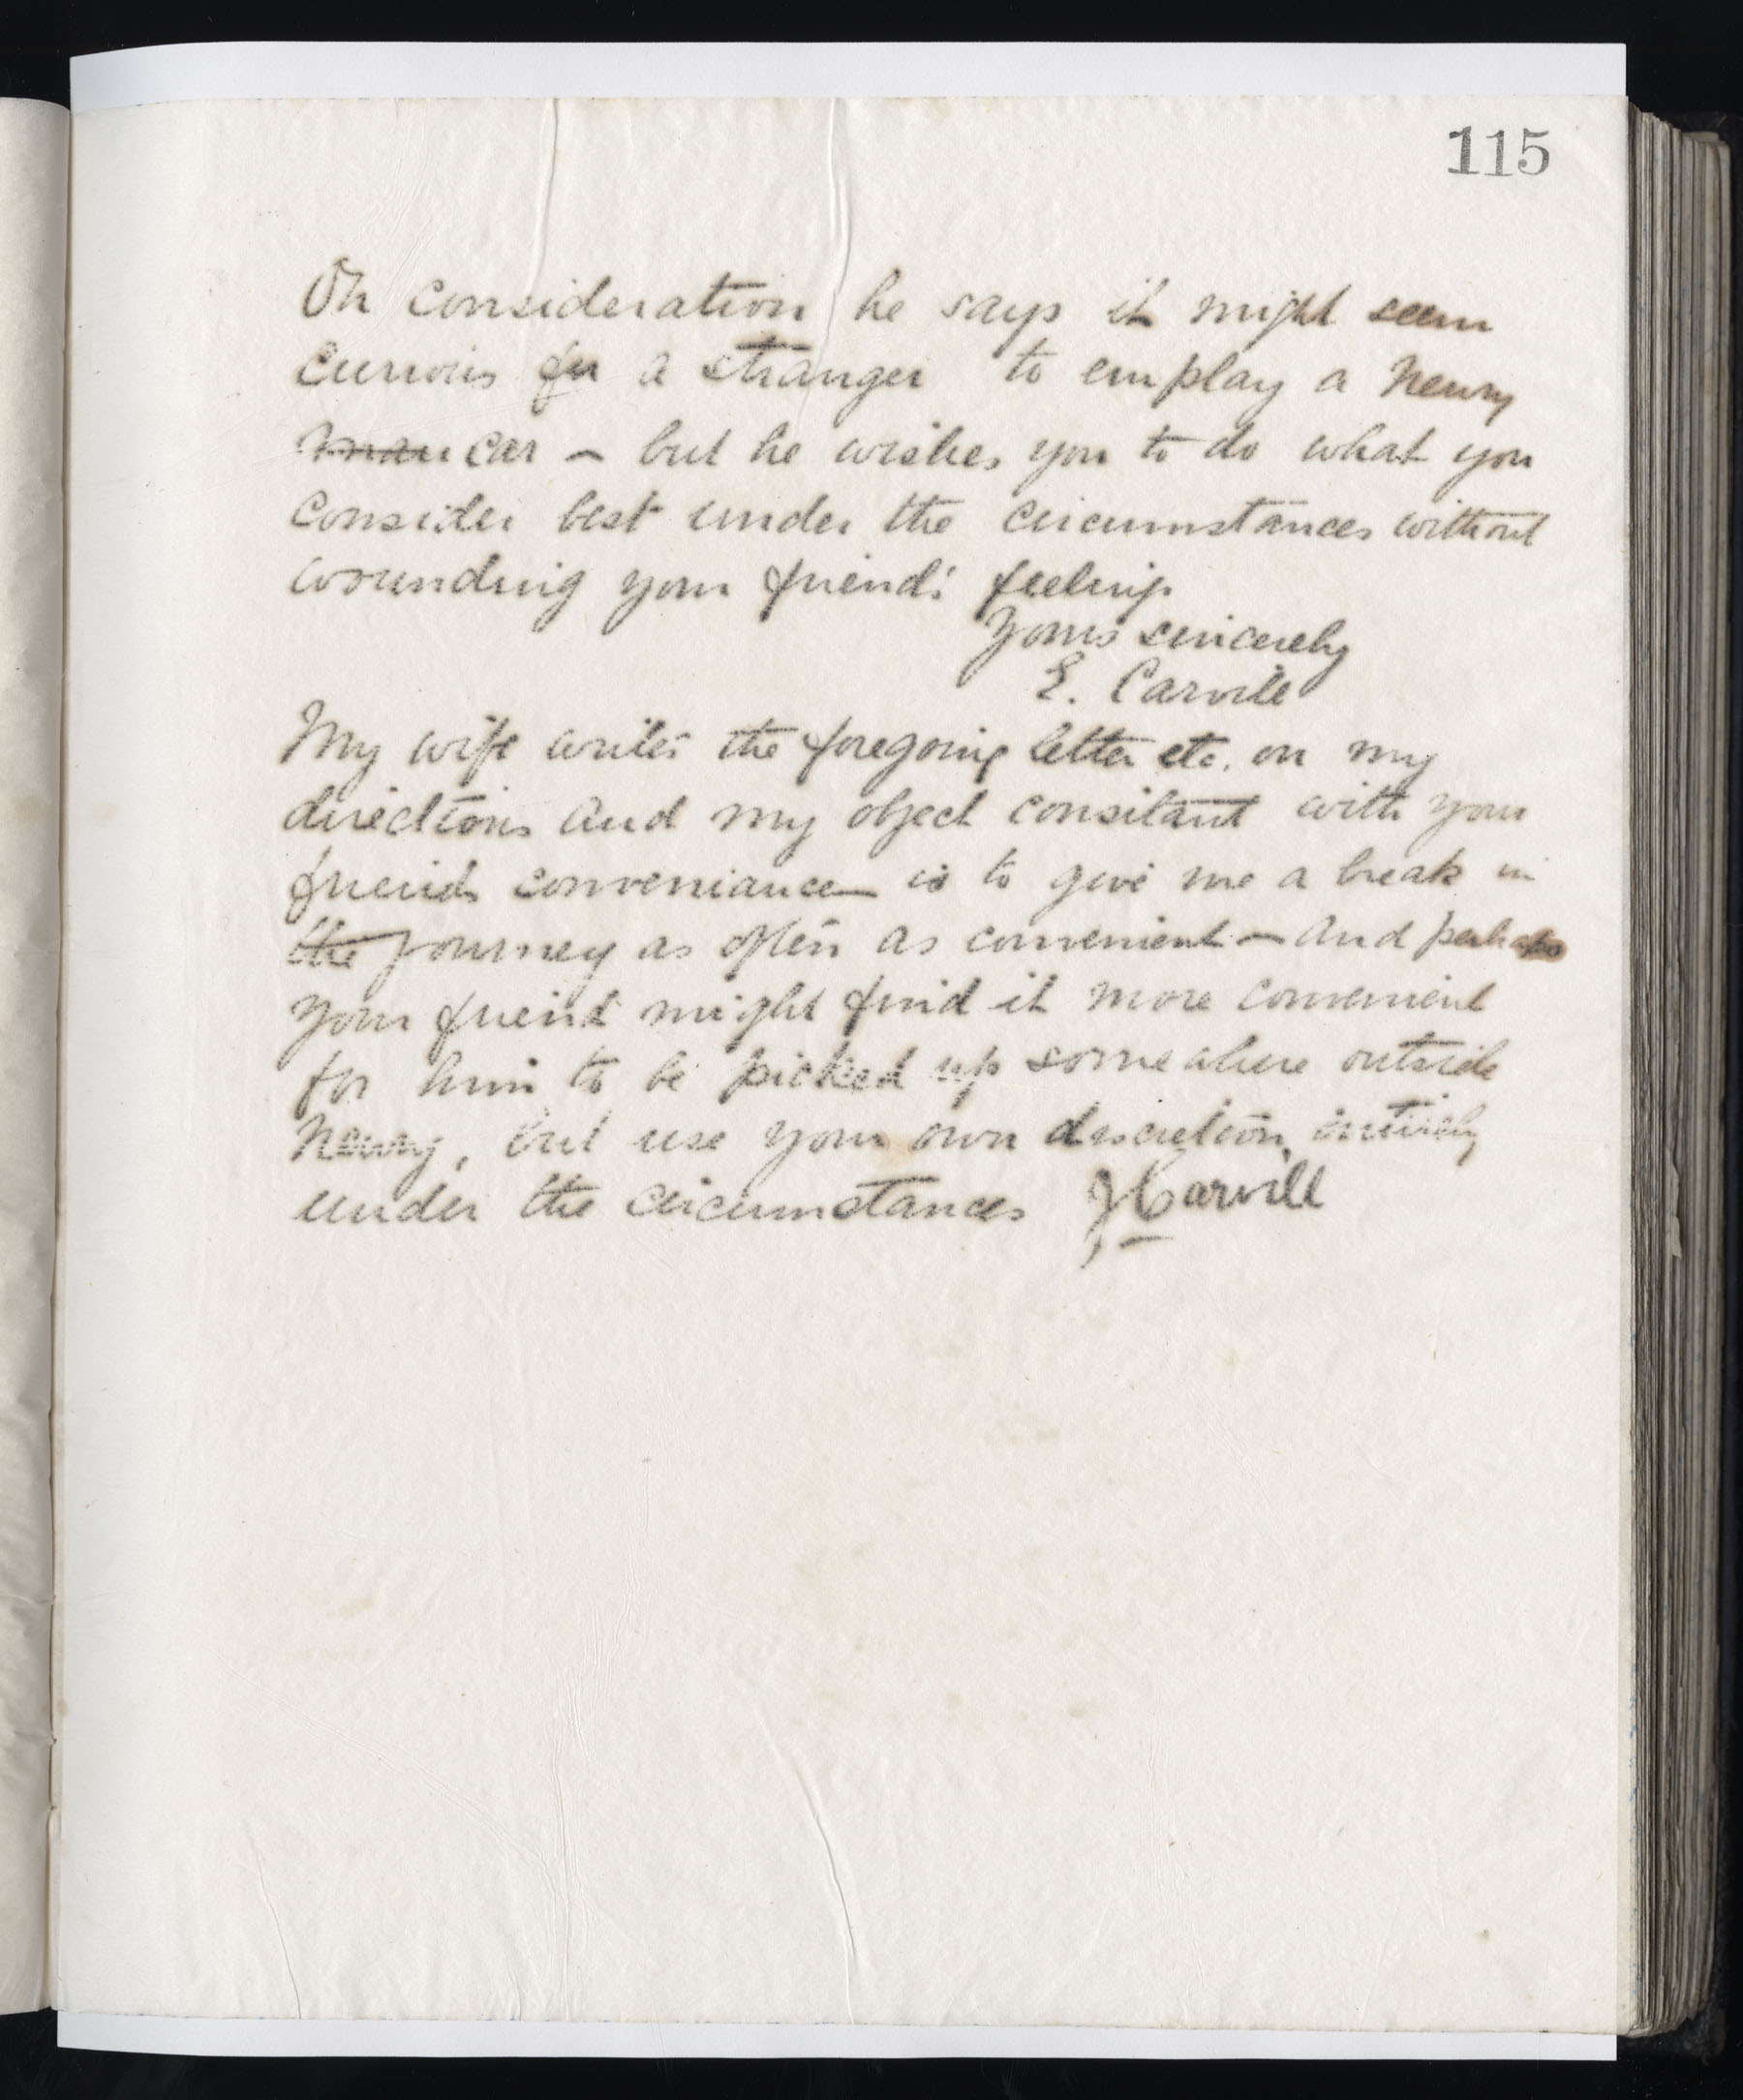 115
On consideration he says it might seem
curious for a stranger to employ a Newry
man car – but he wishes you to do what you
consider best under the circumstances without
wounding your friend's feelings
Yours sincerely
E. Carvill
My wife writes the foregoing letter etc. on my
directions and my object consitant with your
friends conveniance is to give me a break in
the journey as often as convenient – and perhaps
your friend might find it more convenient
for him to be picked up somewhere outside
Newry, but use your own discretion entirely
under the circumstances JCarvill